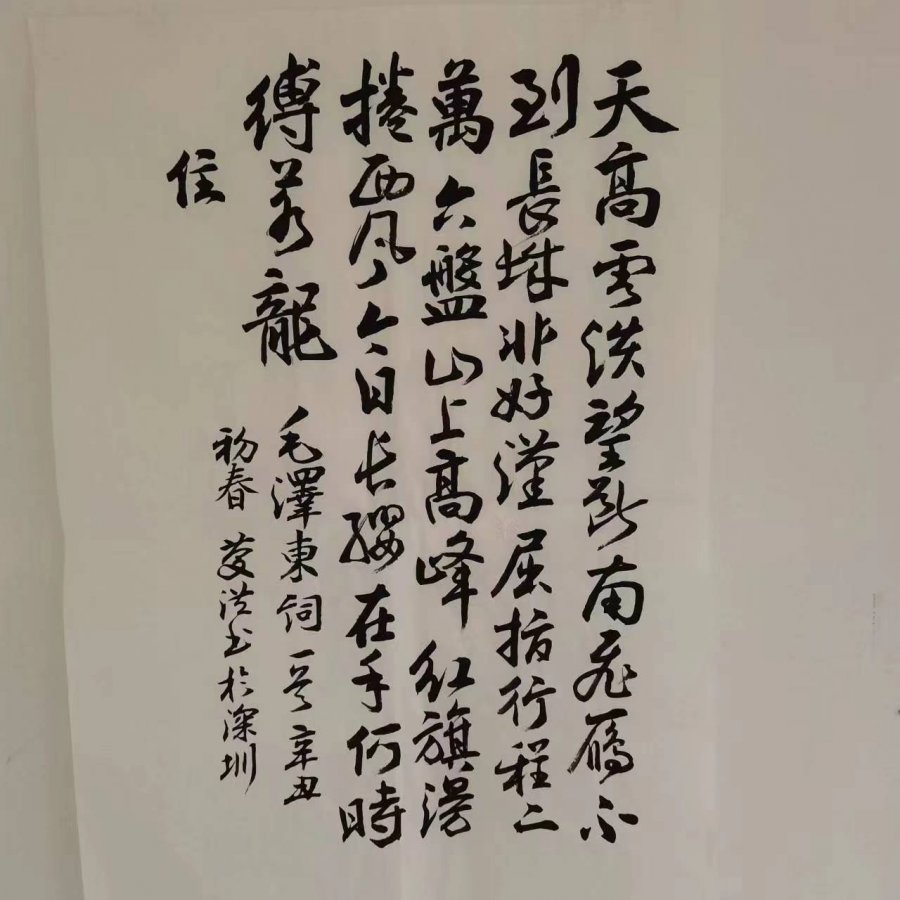 天高雲淡望斷南飛雁不
到長城非好漢屈指行程二
萬六盤山上高峰紅旗漫
捲西風今日長纓在手何時
縛蒼龍
住
毛澤東詞一首辛丑
初春 洪书於深圳